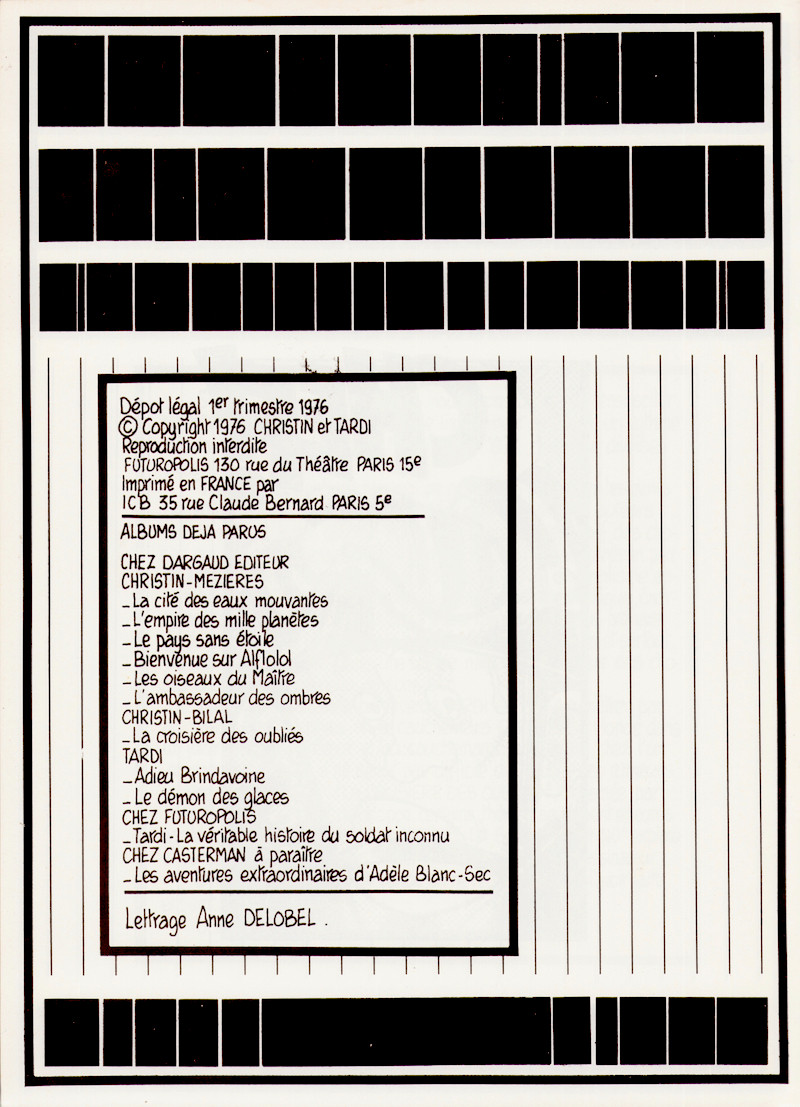 Dépot légal 1er trimestre 1976
© Copyright 1976 CHRISTIN et TARDI
Reproduction interdite
FUTUROPOLIS 130 rue du Théâtre PARIS 15e
Imprimé en FRANCE par
ICB 35 rue Claude Bernard PARIS 5e
ALBUMS DEJA PARUS
CHEZ DARGAUD EDITEUR
CHRISTIN-MEZIERES
_La cité des eaux mouvantes
_L'empire des mille planètes
_Le pays sans étoile
_Bienvenue sur Alflolol
_Les oiseaux du Maître
_L'ambassadeur des ombres
CHRISTIN-BILAL
_La croisière des oubliés
TARDI
_Adieu Brindavoine
_Le démon des glaces
CHEZ FUTUROPOLIS
_Tardi-La véritable histoire du soldat inconnu
CHEZ CASTERMAN à paraître
_Les aventures extraordinaires d'Adèle Blanc-Sec
Lettrage Anne DELOBEL.